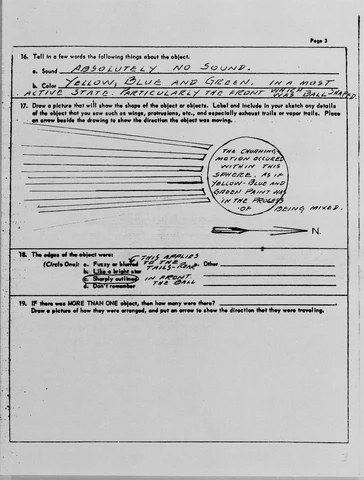 Page 3
16. Tell in a few words the following things about the object.
a. Sound ABSOLUTELY NO SOUND.
b. Color YELLOW, BLUE AND GREEN. IN A MOST
ACTIVE STATE. PARTICULARLY THE FRONT WHICH WAS BALL SHAPED.
17. Draw a picture that will show the shape of the object or objects. Label and include in your sketch any details
of the object that you saw such as wings, protrusions, etc., and especially exhaust trails or vapor trails. Place
an arrow beside the drawing to show the direction the object was moving.
THE CHURNING
MOTION OCCURED
WITHIN THIS
SPHERE. AS IF
YELLOW-BLUE AND
GREEN PAINT WAS
IN THE PROCESS
OF BEING MIXED.
N.
18. The edges of the object were:
(Circle One): a. Fuzzy or blurred THIS APPLIES TO THE TAILS-REAR e. Other
b. Like a bright star
c. Sharply outlined IN FRONT. THE BALL
d. Don't remember
19. IF there was MORE THAN ONE object, then how many were there?
Draw a picture of how they were arranged, and put an arrow to show the direction that they were traveling.